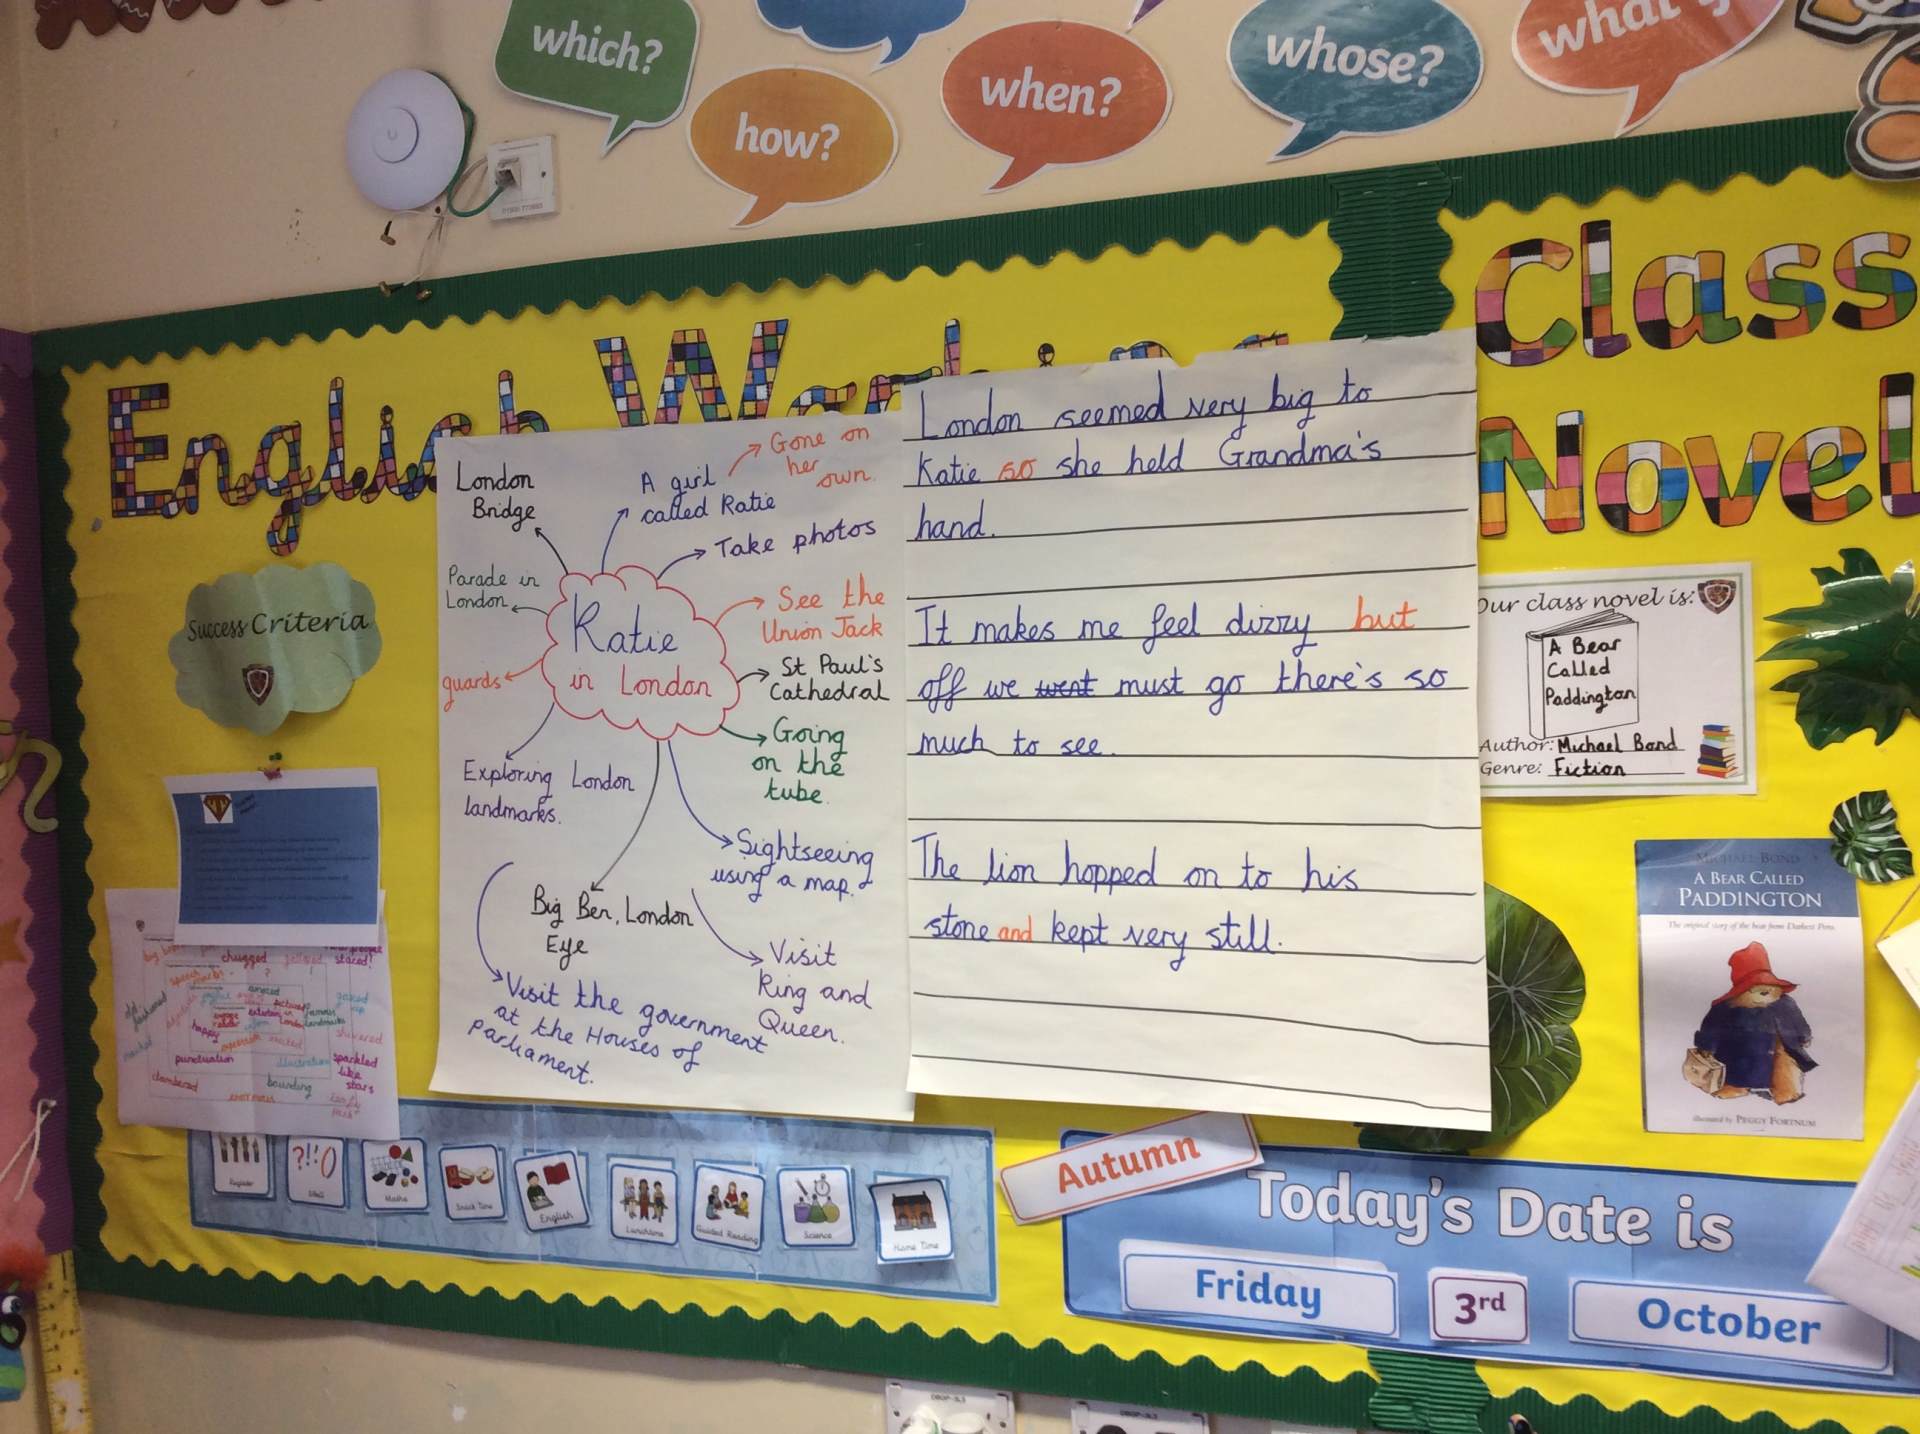 which?
how?
when?
whose?
English
Class
Novel
Success Criteria
London
Bridge
A girl
called Katie
Gone on
her
own.
Take photos
Parade in
London
See the
Union Jack
Katie
in London
guards
St Paul's
Cathedral
Going
on the
tube.
Exploring London
landmarks.
Sightseeing
using a map.
Big Ben, London
Eye
Visit
King and
Queen.
Visit the government
at the Houses of
Parliament.
London seemed very big to
Katie so she held Grandma's
hand.
It makes me feel dizzy but
off we went must go there's so
much to see.
The lion hopped on to his
stone and kept very still.
Our class novel is:
A Bear
Called
Paddington
Author: Michael Bond
Genre: Fiction
MICHAEL BOND
A BEAR CALLED
PADDINGTON
The original story of the bear from Darkest Peru
illustrated by PEGGY FORTNUM
chugged
punctuation
bounding
sparkled
like
stars
clambered
enormous
happy
Register
Maths
Snack Time
English
Lunchtime
Guided Reading
Science
Home Time
Autumn
Today's Date is
Friday
3rd
October